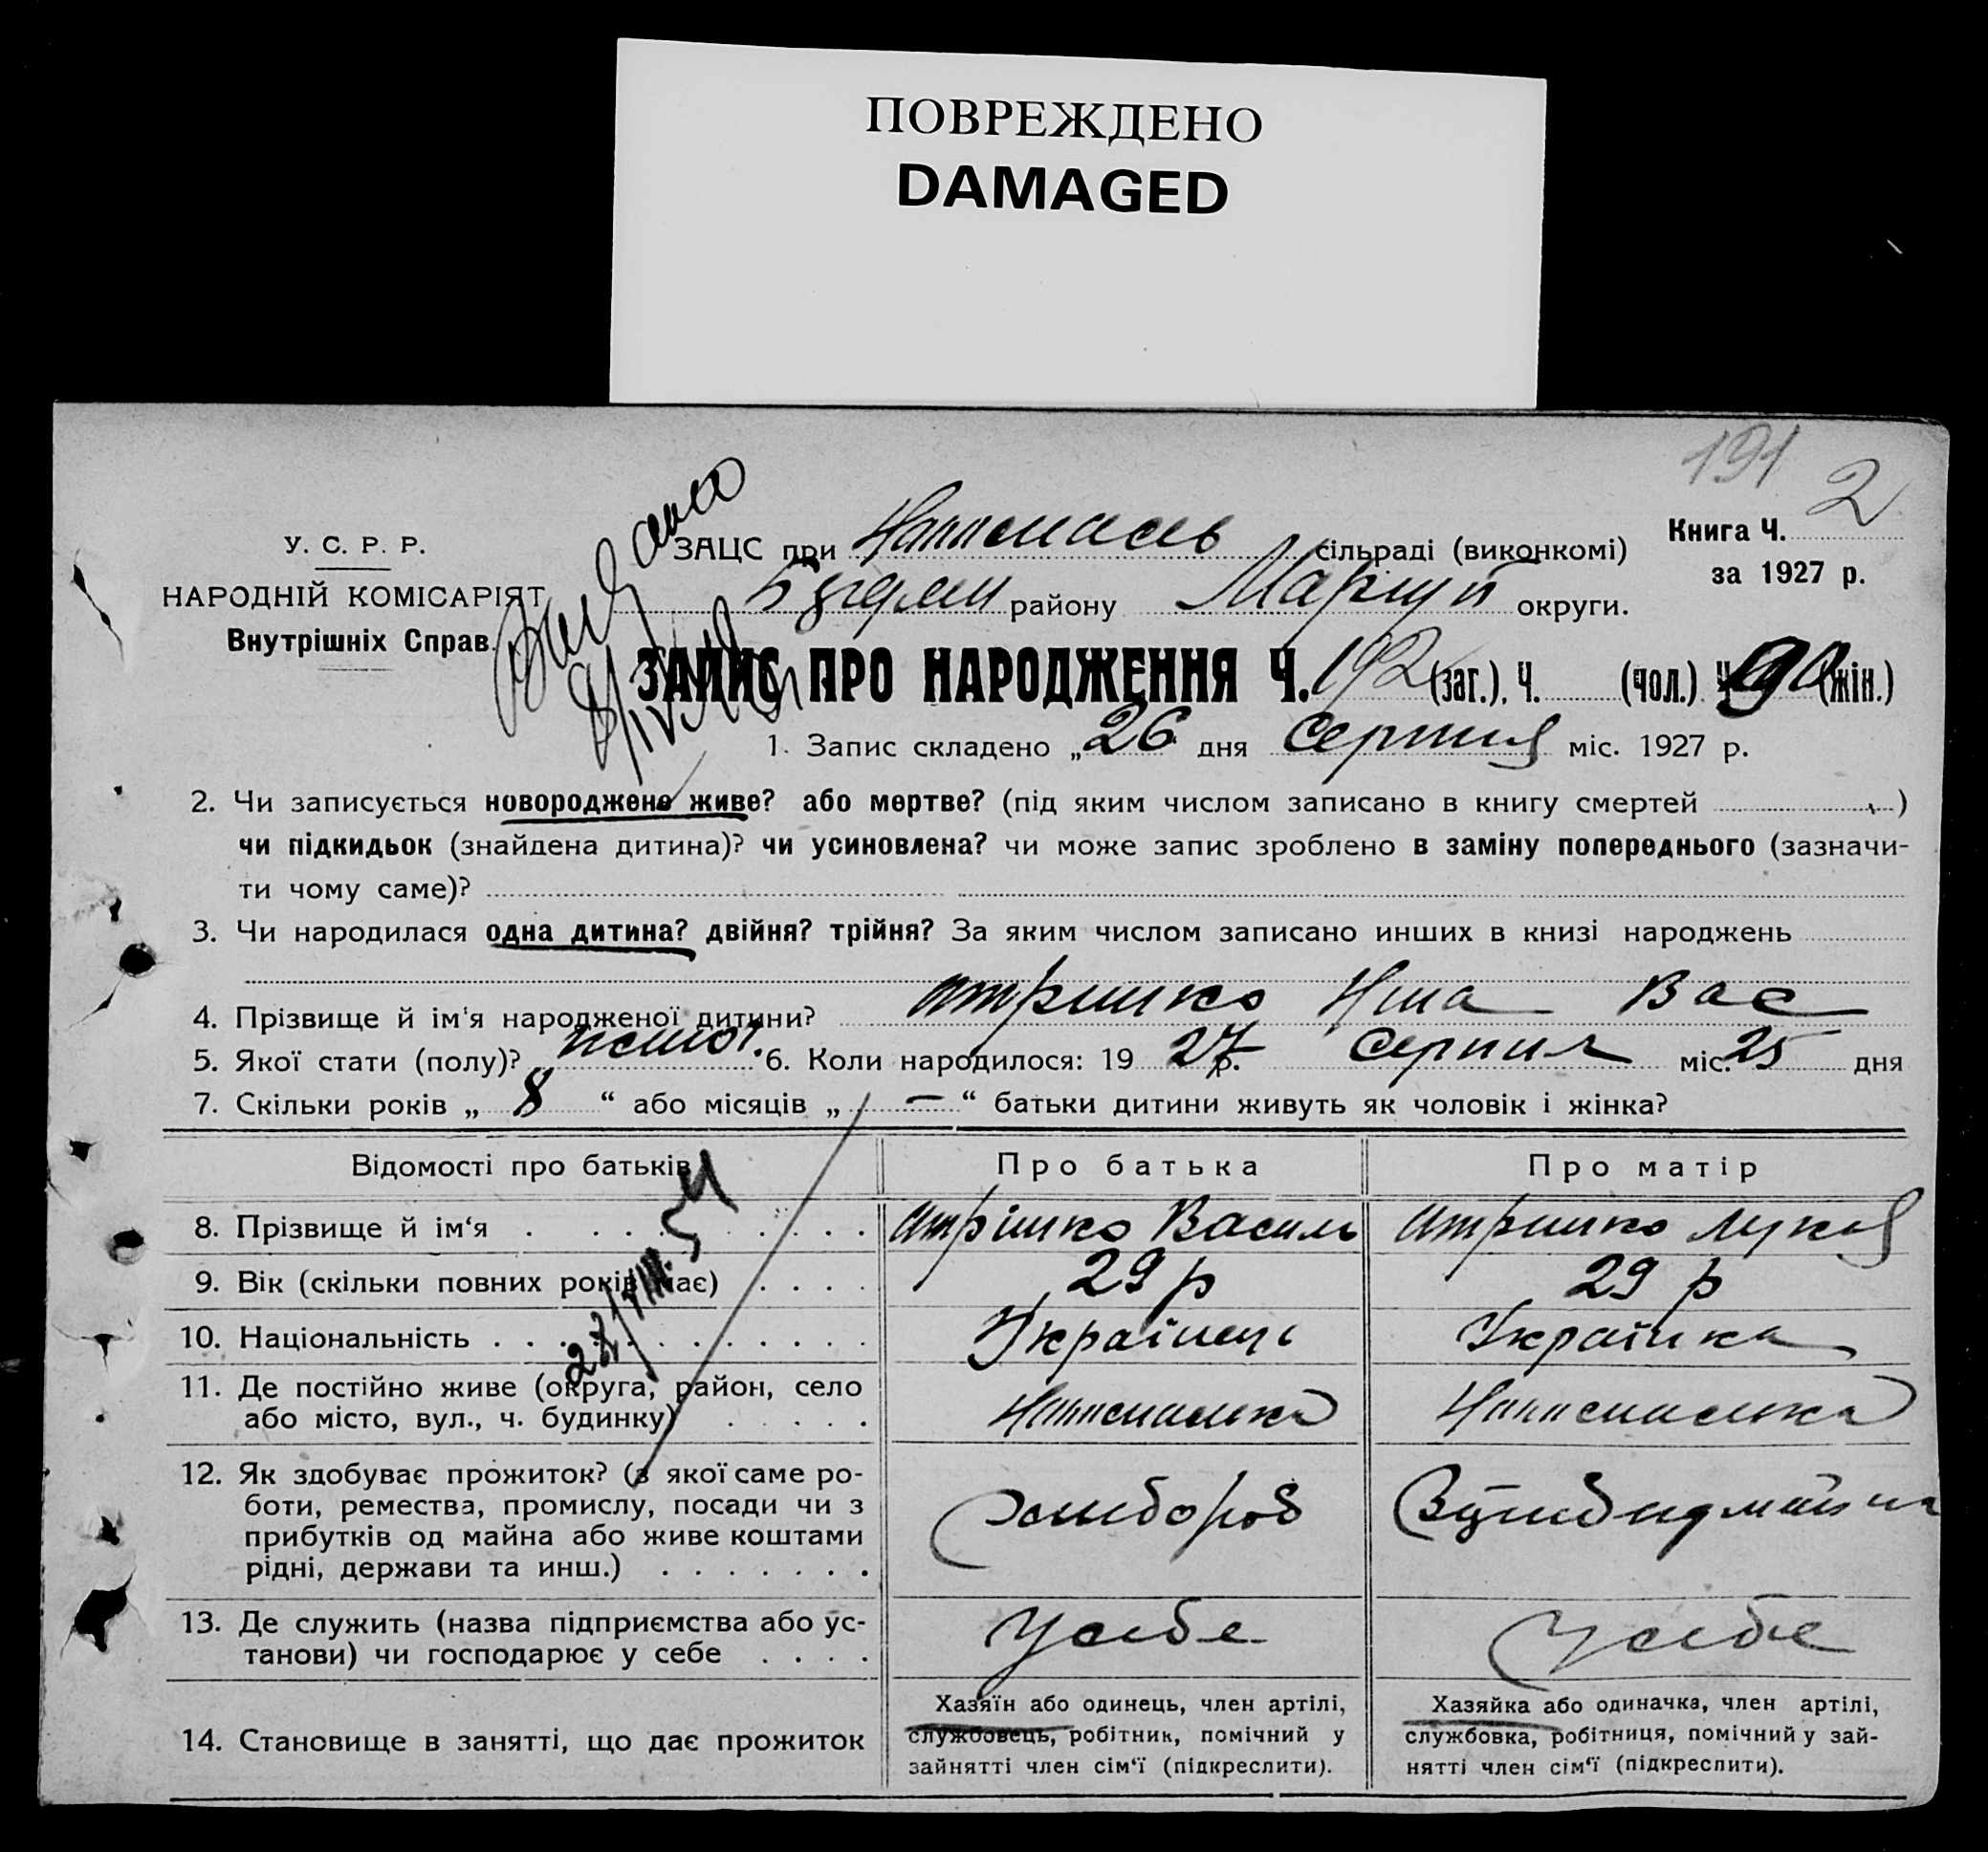 ПОВРЕЖДЕНО
DAMAGED
191 2
У. С. Р. Р.
НАРОДНІЙ КОМІСАРІЯТ
Внутрішніх Справ.
ЗАЦС при сільраді (виконкомі)
Книга Ч.
за 1927 р.
району Маріуп округи.
ЗАПИС ПРО НАРОДЖЕННЯ Ч. 192 (заг.), Ч. (чол.) Ч. 90 (жін.)
1. Запис складено „26 дня Серпня міс. 1927 р.
2. Чи записується новороджене живе? або мертве? (під яким числом записано в книгу смертей )
чи підкидьок (знайдена дитина)? чи усиновлена? чи може запис зроблено в заміну попереднього (зазначи-
ти чому саме)?
3. Чи народилася одна дитина? двійня? трійня? За яким числом записано инших в книзі народжень
4. Прізвище й ім'я народженої дитини? Ніна Вас
5. Якої стати (полу)? жіноч. 6. Коли народилося: 19 27 р. Серпня міс. 25 дня
7. Скільки років „ 8 “ або місяців „ — “ батьки дитини живуть як чоловік і жінка?
Відомості про батьків
Про батька
Про матір
8. Прізвище й ім‘я
Василь
9. Вік (скільки повних років має)
29 р
29 р
10. Національність
Українець
Українка
11. Де постійно живе (округа, район, село
або місто, вул., ч. будинку)
12. Як здобуває прожиток? (з якої саме ро-
боти, ремества, промислу, посади чи з
прибутків од майна або живе коштами
рідні, держави та инш.)
Хлибороб
13. Де служить (назва підприємства або ус-
танови) чи господарює у себе
У себе
У себе
14. Становище в занятті, що дає прожиток
Хазяїн або одинець, член артілі,
службовець, робітник, помічний у
зайнятті член сім‘ї (підкреслити).
Хазяйка або одиначка, член артілі,
службовка, робітниця, помічний у зай-
нятті член сім‘ї (підкреслити).